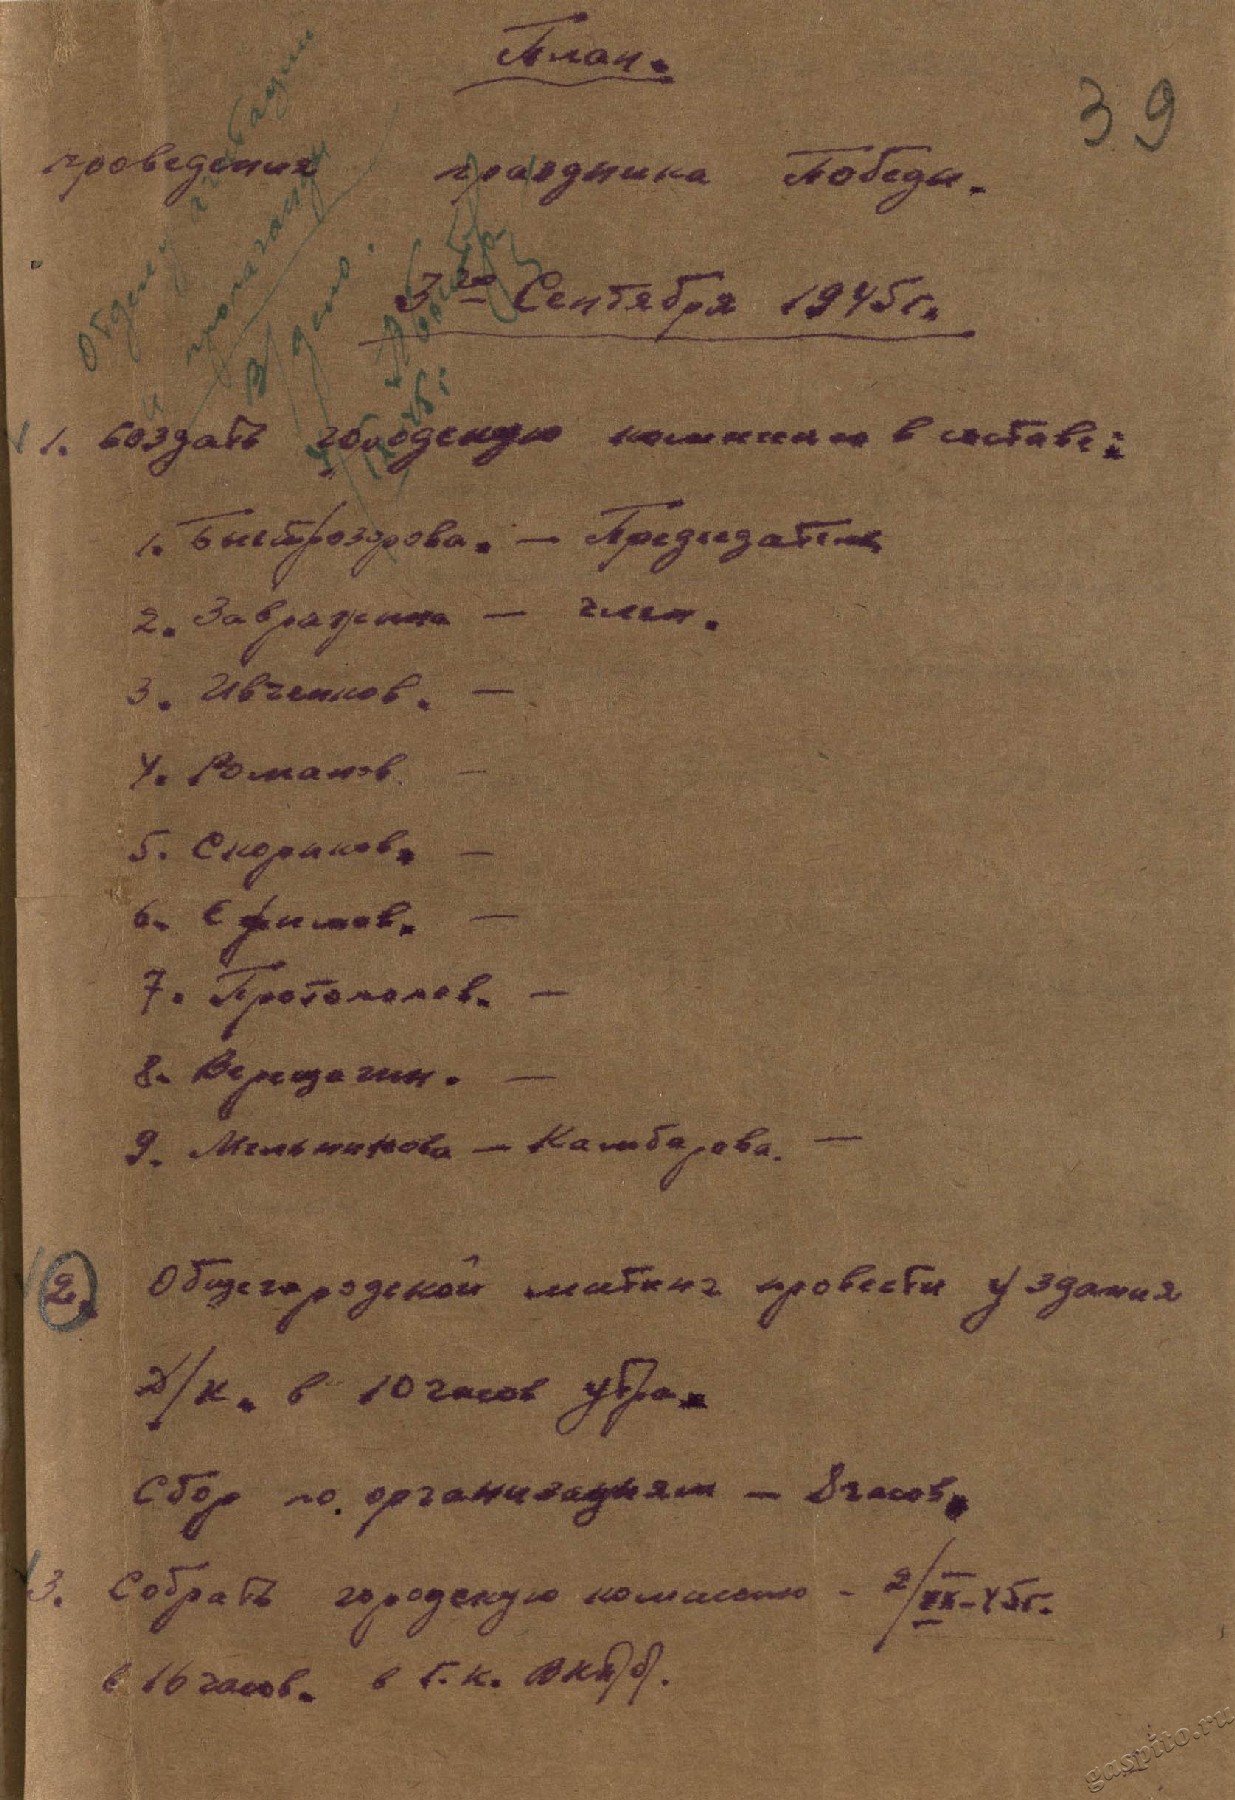 План.
39
проведения праздника Победы.
3го Сентября 1945г.
Отделу агитации
и пропаганды
В дело.
1. Создать городскую комиссию в составе:
1. Быстрозорова. — Председатель
2. Завражина — член.
3. Ивченков. —
4. Романов —
5. Скориков. —
6. Ефимов. —
7. Протопопов. —
8. Верещагин. —
9. Мельникова — Камбарова. —
2. Общегородской митинг провести у здания
Д/к. в 10 часов утра.
Сбор по организациям — 8 часов.
3. Собрать городскую комиссию - 2/IX-45г.
в 16 часов. в Г.К. ВКП/б/.
gaspito.ru